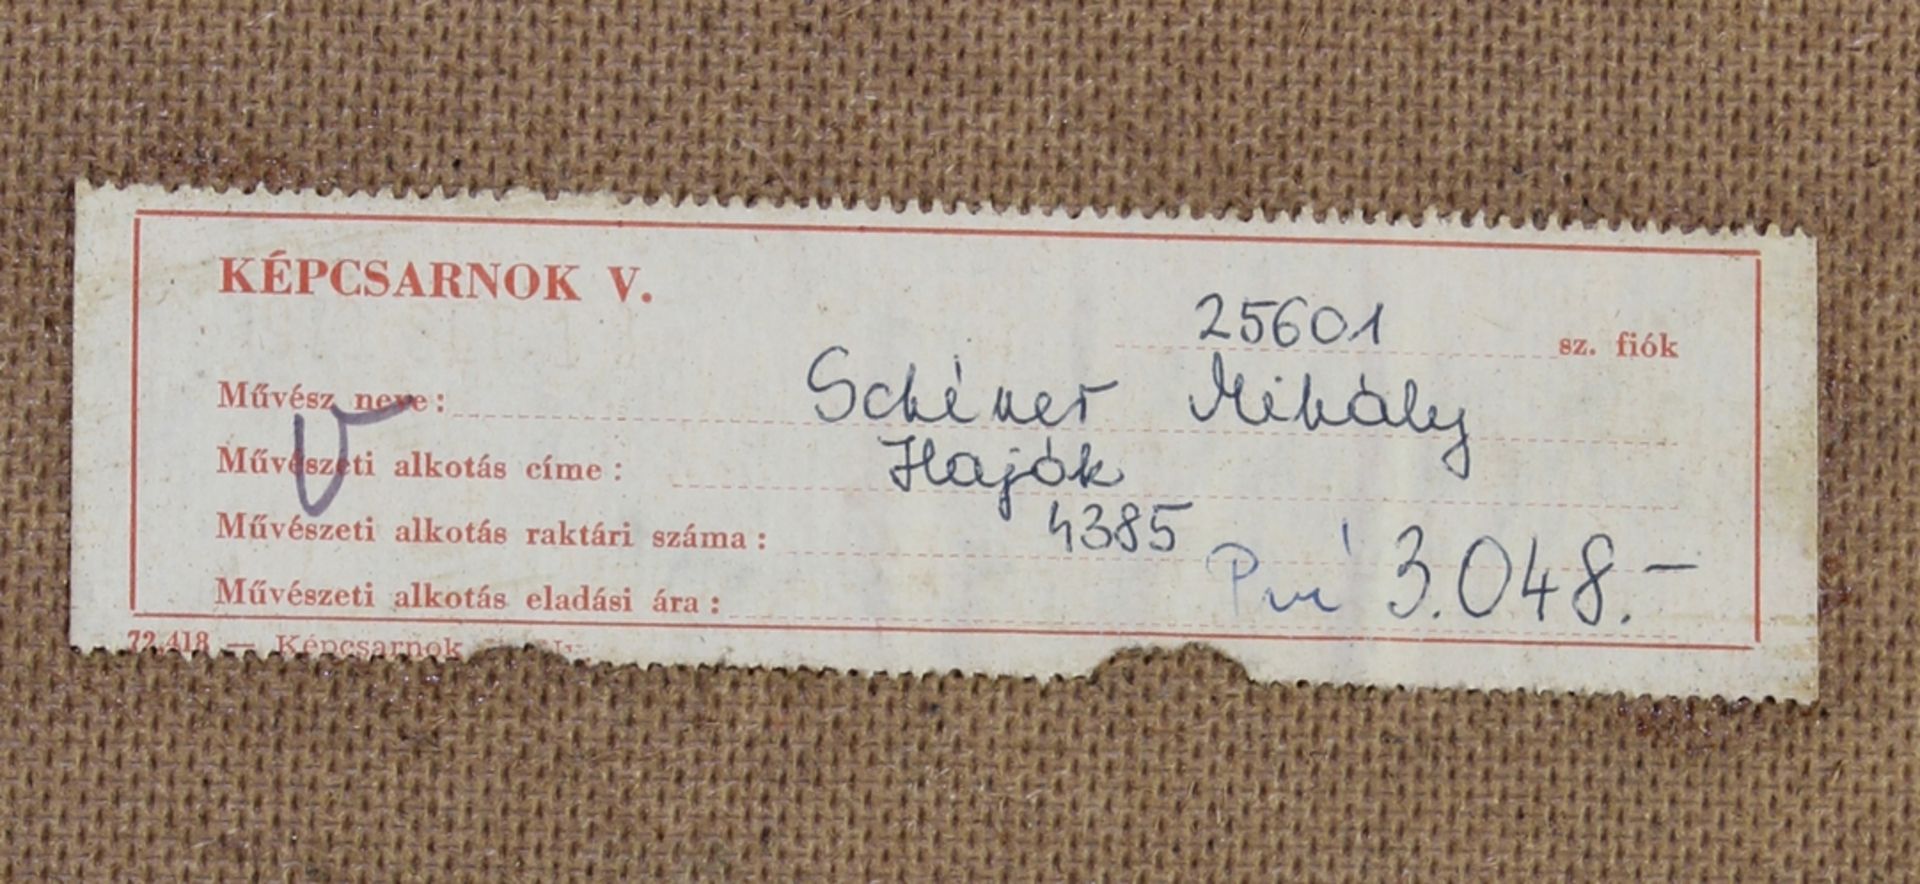 KÉPCSARNOK V.
25601 sz. fiók
Művész neve: Schéner Mihály
Művészeti alkotás címe: Hajók
Művészeti alkotás raktári száma: 4385
Művészeti alkotás eladási ára: 3.048.-
72.418 — Képcsarnok